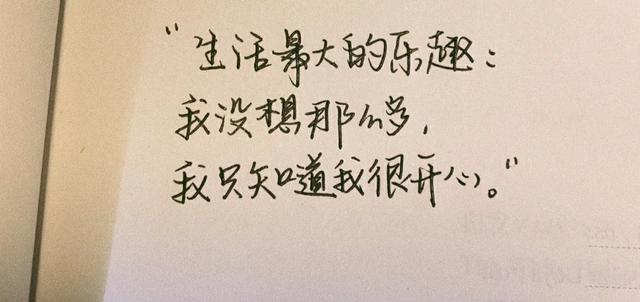 “生活最大的乐趣：
我没想那么多，
我只知道我很开心。”